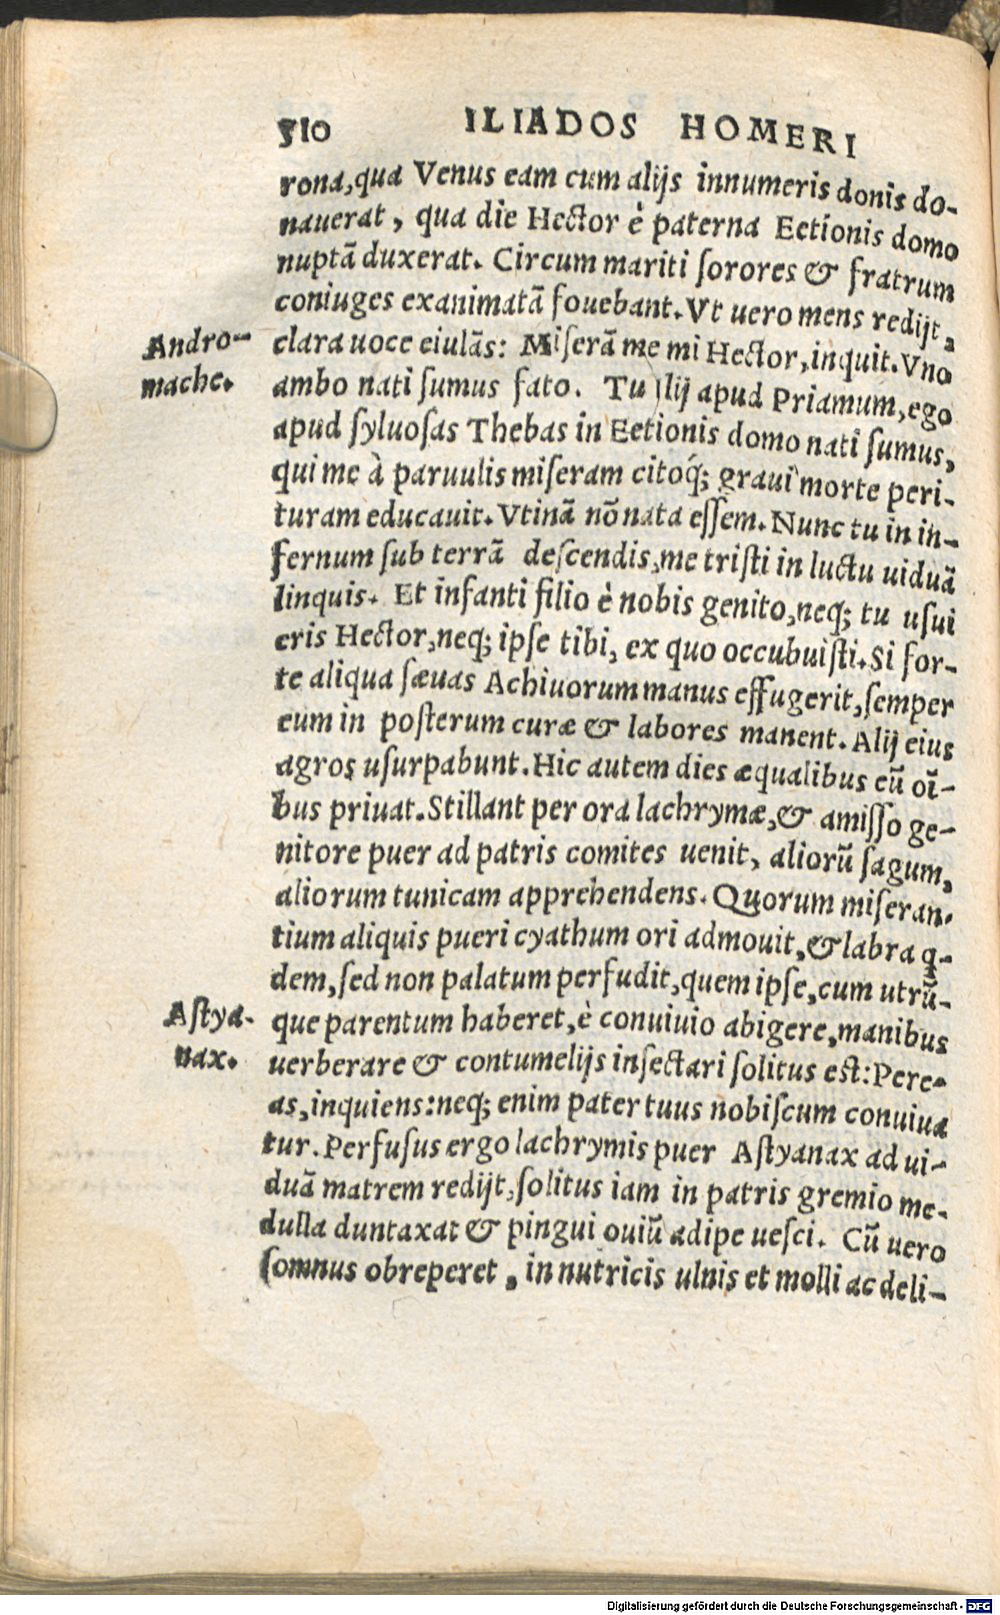 510 ILIADOS HOMERI
rona, qua Venus eam cum alijs innumeris donis do-
nauerat, qua die Hector è paterna Eetionis domo
nuptã duxerat. Circum mariti ſorores & fratrum
coniuges exanimatã fouebant. Vt uero mens redijt,
Andro-
mache.
clara uoce eiulãs: Miſerã me mi Hector, inquit. Vno
ambo nati ſumus fato. Tu Ilij apud Priamum, ego
apud ſyluoſas Thebas in Eetionis domo nati ſumus,
qui me à paruulis miſeram citoq́; graui morte peri-
turam educauit. Vtinã nõ nata eſſem. Nunc tu in in-
fernum ſub terrã deſcendis, me triſti in luctu uiduã
linquis. Et infanti filio è nobis genito, neq; tu uſui
eris Hector, neq; ipſe tibi, ex quo occubuiſti. Si for-
te aliqua ſæuas Achiuorum manus effugerit, ſemper
eum in poſterum curæ & labores manent. Alij eius
agros uſurpabunt. Hic autem dies æqualibus eũ oĩ-
bus priuat. Stillant per ora lachrymæ, & amiſſo ge-
nitore puer ad patris comites uenit, aliorũ ſagum,
aliorum tunicam apprehendens. Quorum miſeran-
tium aliquis pueri cyathum ori admouit, & labra q̃-
dem, ſed non palatum perfudit, quem ipſe, cum utrũ-
Aſtya-
nax.
que parentum haberet, è conuiuio abigere, manibus
uerberare & contumelijs inſectari ſolitus eſt: Pere-
as, inquiens: neq; enim pater tuus nobiſcum conuiua
tur. Perfuſus ergo lachrymis puer Aſtyanax ad ui-
duã matrem redijt, ſolitus iam in patris gremio me-
dulla duntaxat & pingui ouiũ adipe ueſci. Cũ uero
ſomnus obreperet, in nutricis ulnis et molli ac deli-
Digitalisierung gefördert durch die Deutsche Forschungsgemeinschaft - DFG